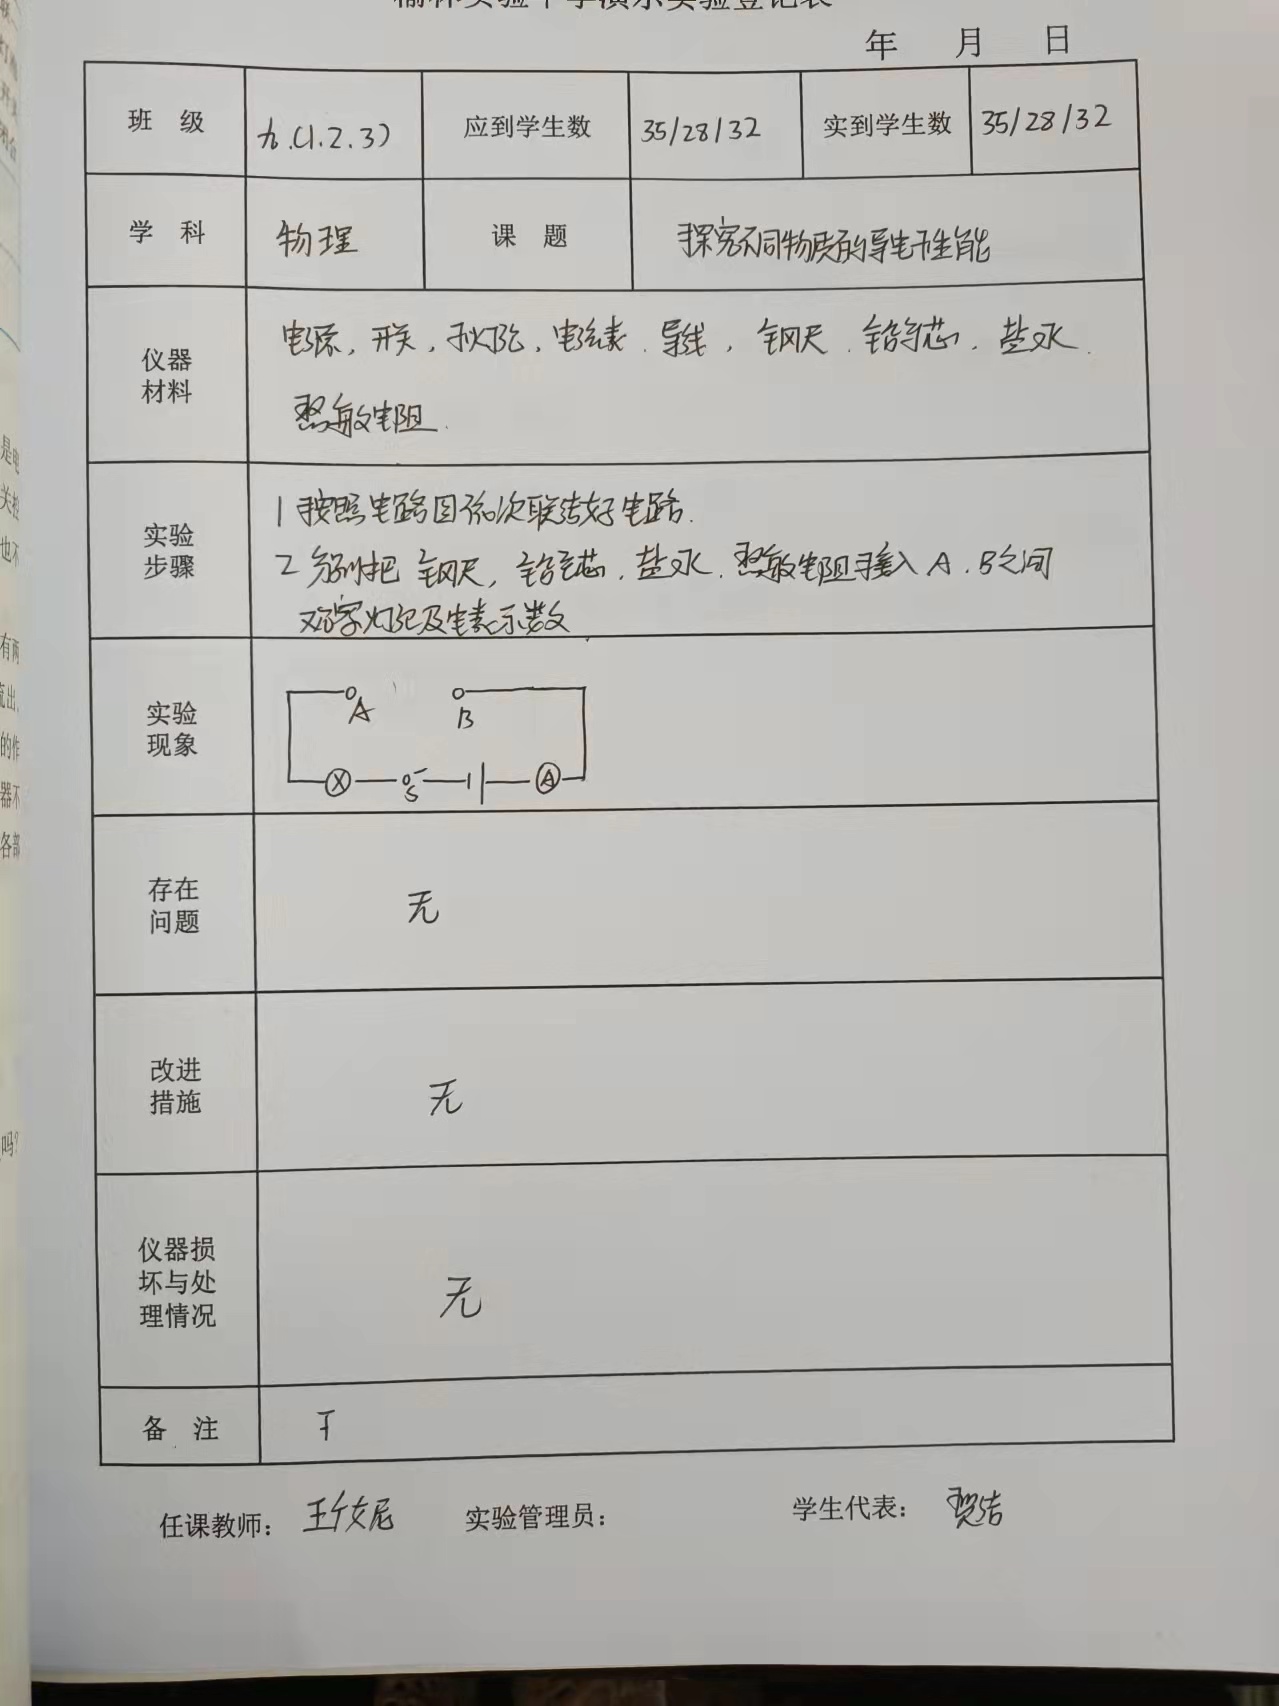 榆林实验中学演示实验登记表
年 月 日
班 级 九.(1.2.3) 应到学生数 35/28/32 实到学生数 35/28/32
学 科 物理 课 题 探究不同物质的导电性能
仪器材料 电源,开关,小灯泡,电流表.导线,钢尺.铅笔芯.盐水.
热敏电阻.
实验步骤 1 按照电路图依次联结好电路.
2 分别把 钢尺,铅笔芯.盐水.热敏电阻接入 A.B之间
观察灯泡及电表示数
实验现象
A B
S A
存在问题 无
改进措施 无
仪器损坏与处理情况 无
备 注
任课教师: 实验管理员: 学生代表:
是电
关控
也不
有两
流出
的作
器不
各部
吗?